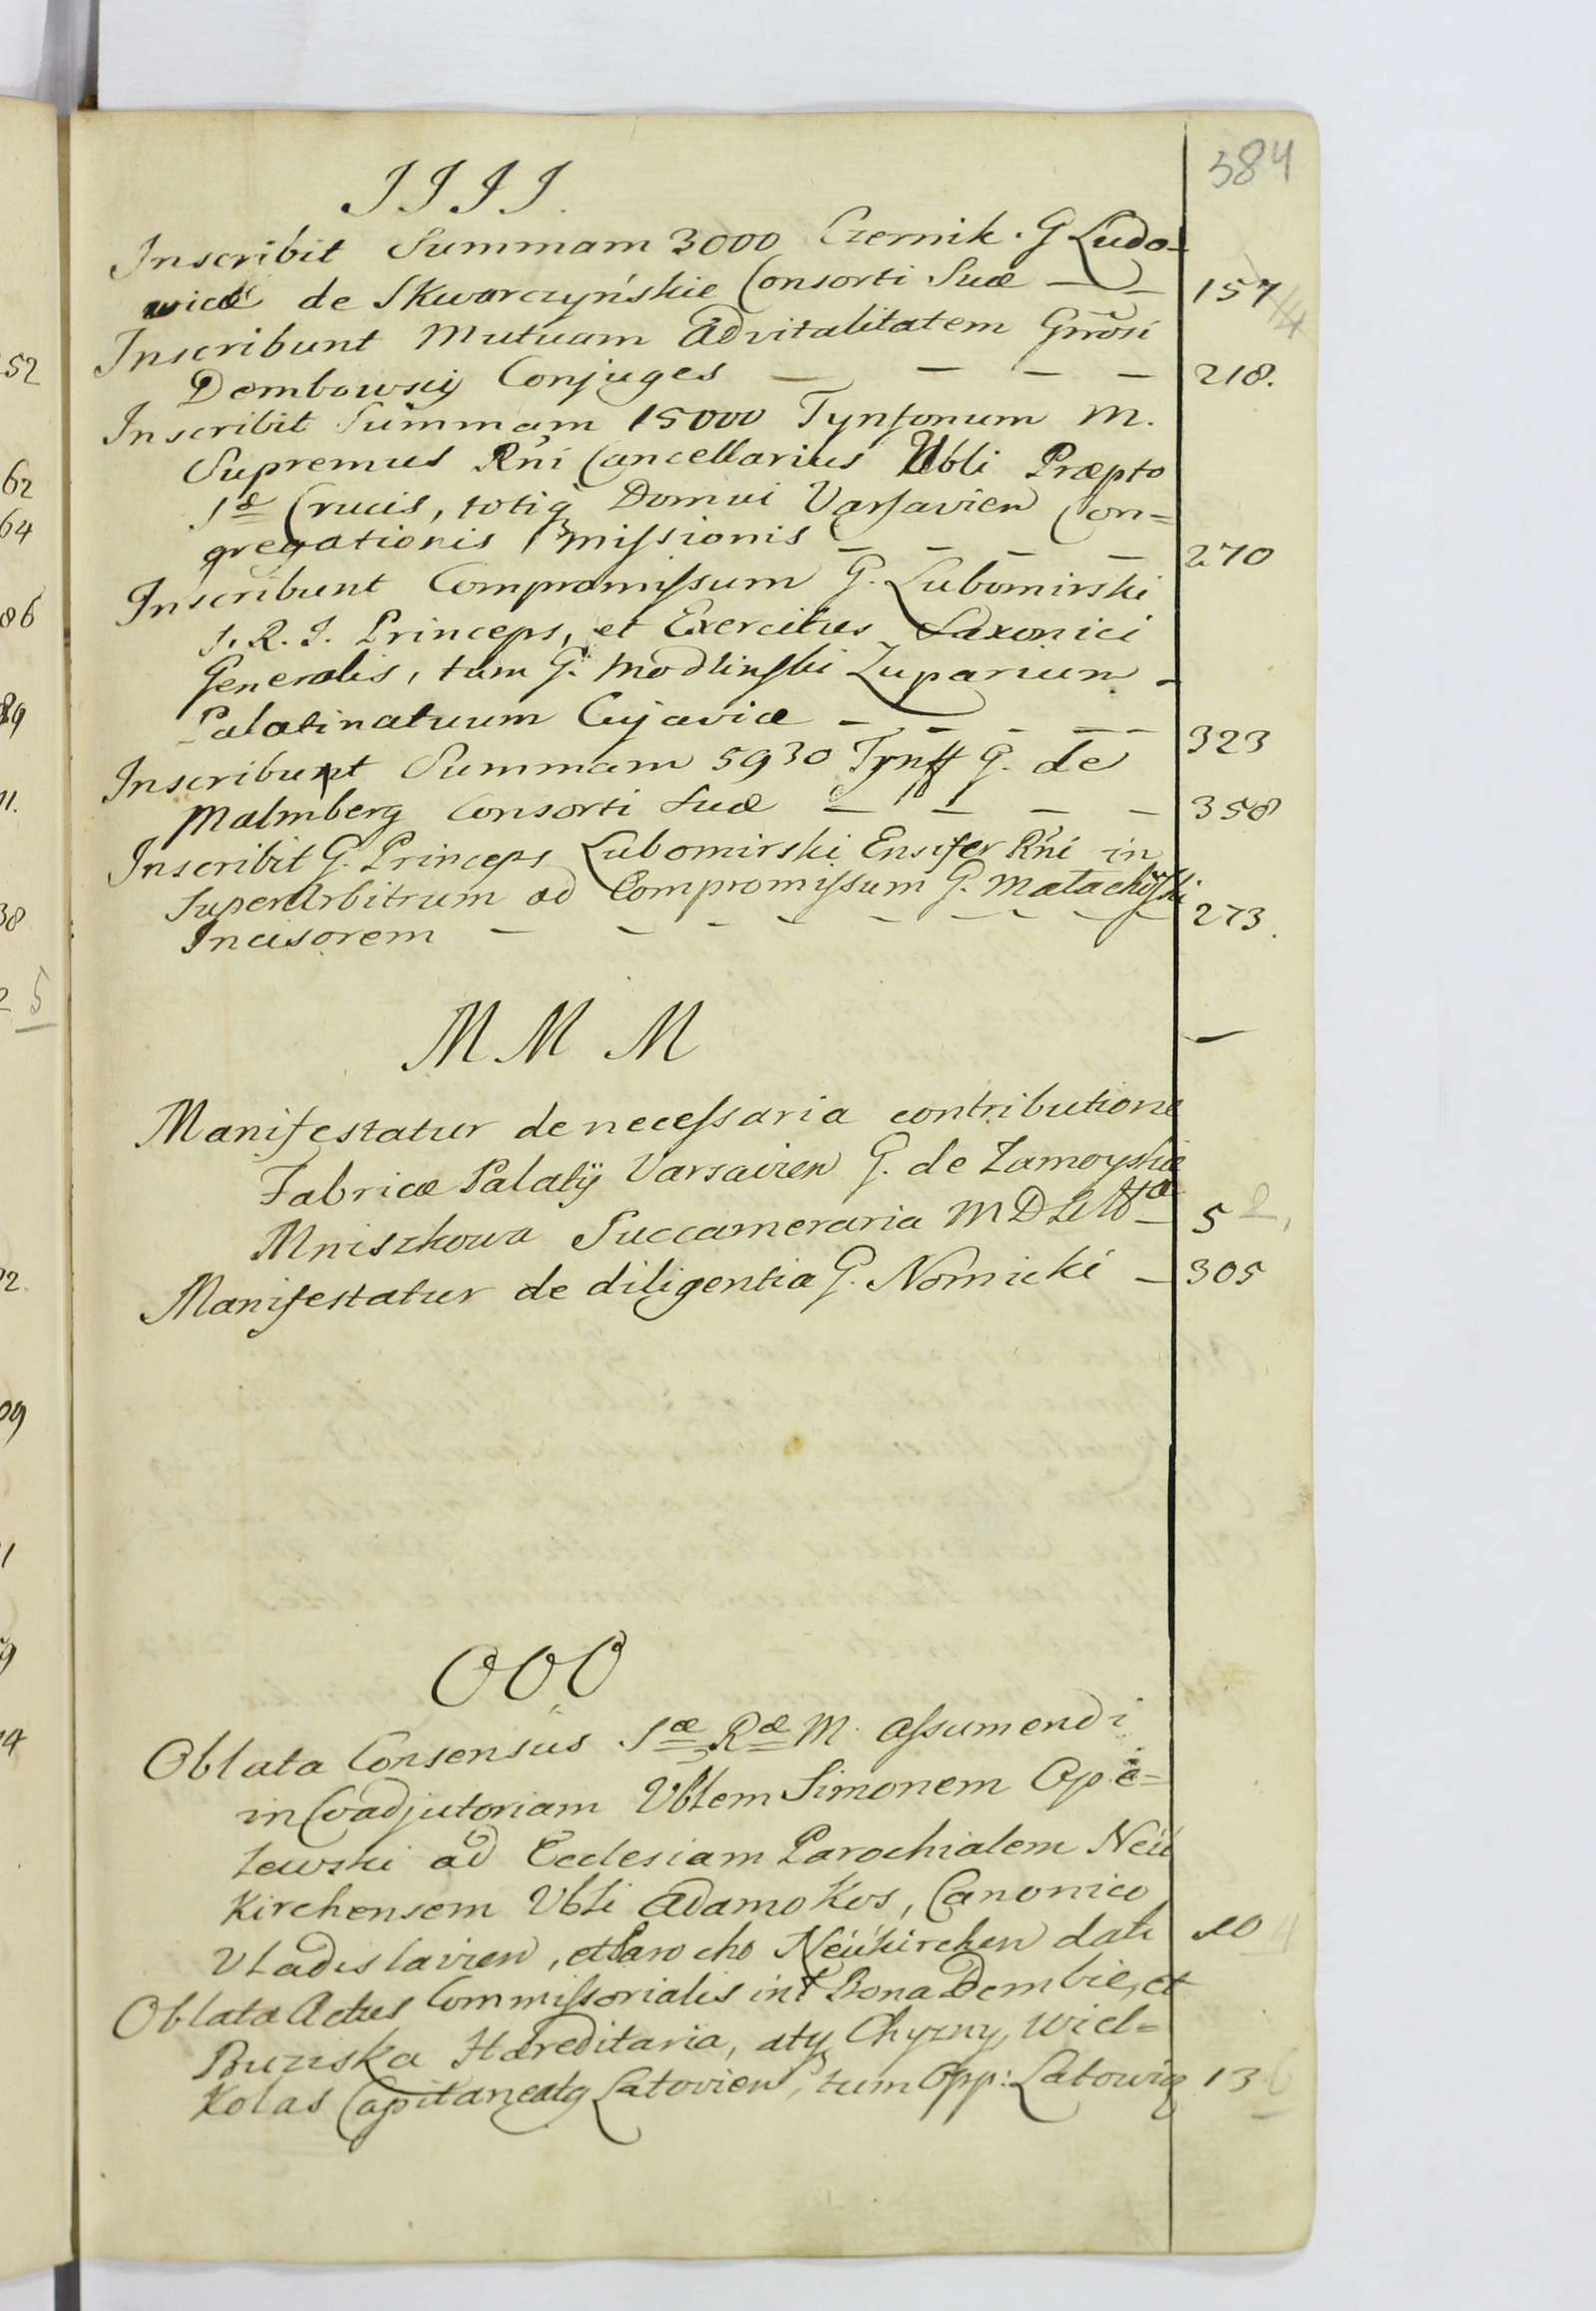 384
J J J J.
Inscribit Summam 3000 Czernik. G Ludo-
wicæ de Skwarczyńskie Consorti Suæ — — 157
Inscribunt Mutuam Advitalitatem Gnrosi
Dombowscy Conjuges — — — — 218.
Inscribit Summam 15000 Tynfonum M.
Supremus Rni Cancellarius Vbli Præpto
Sæ Crucis, totiq Domui Varsavien Con=
gregationis missionis — — — — 270
Inscribunt Compromissum G. Lubomirski
S. R. I. Princeps, et Exercitus Saxonici
Generalis, tum G. Modlinski Zuparium -
Palatinatuum Cujaviæ — — — — 323
Inscribunt Summam 5930 Tynff G. de
Malmberg Consorti Suæ — — — — 358
Inscribit G. Princeps Lubomirski Ensifer Rni in
SuperArbitrum ad Compromissum G. Małachowski
Incisorem — — — — — — — — 273.
M M M —
Manifestatur de necessaria contributione
Fabricæ Palatij Varsavien G. de Zamoyskie
Mniszkowa Succameraria M D Litt — 52,
Manifestatur de diligentia G. Nornicki — 305
O O O
Oblata Consensus Sæ Ræ M. assumendi
in Coadjutoriam Vblem Simonem Opa=
lewski ad Ecclesiam Parochialem Neü
Kirchensem Vbli Adamo Kos, Canonico
Vladislavien, et Parocho Neükirchen dati 10 4
Oblata Actus Commissorialis int Bona Dembie, et
Buziska Hæreditaria, atq Chyzny, Wiel=
Kolas Capitaneatq Latovien, tum Opp: Latowicz 136
52
62
64
86
89
11.
38
2 5
92.
09
1
9
14